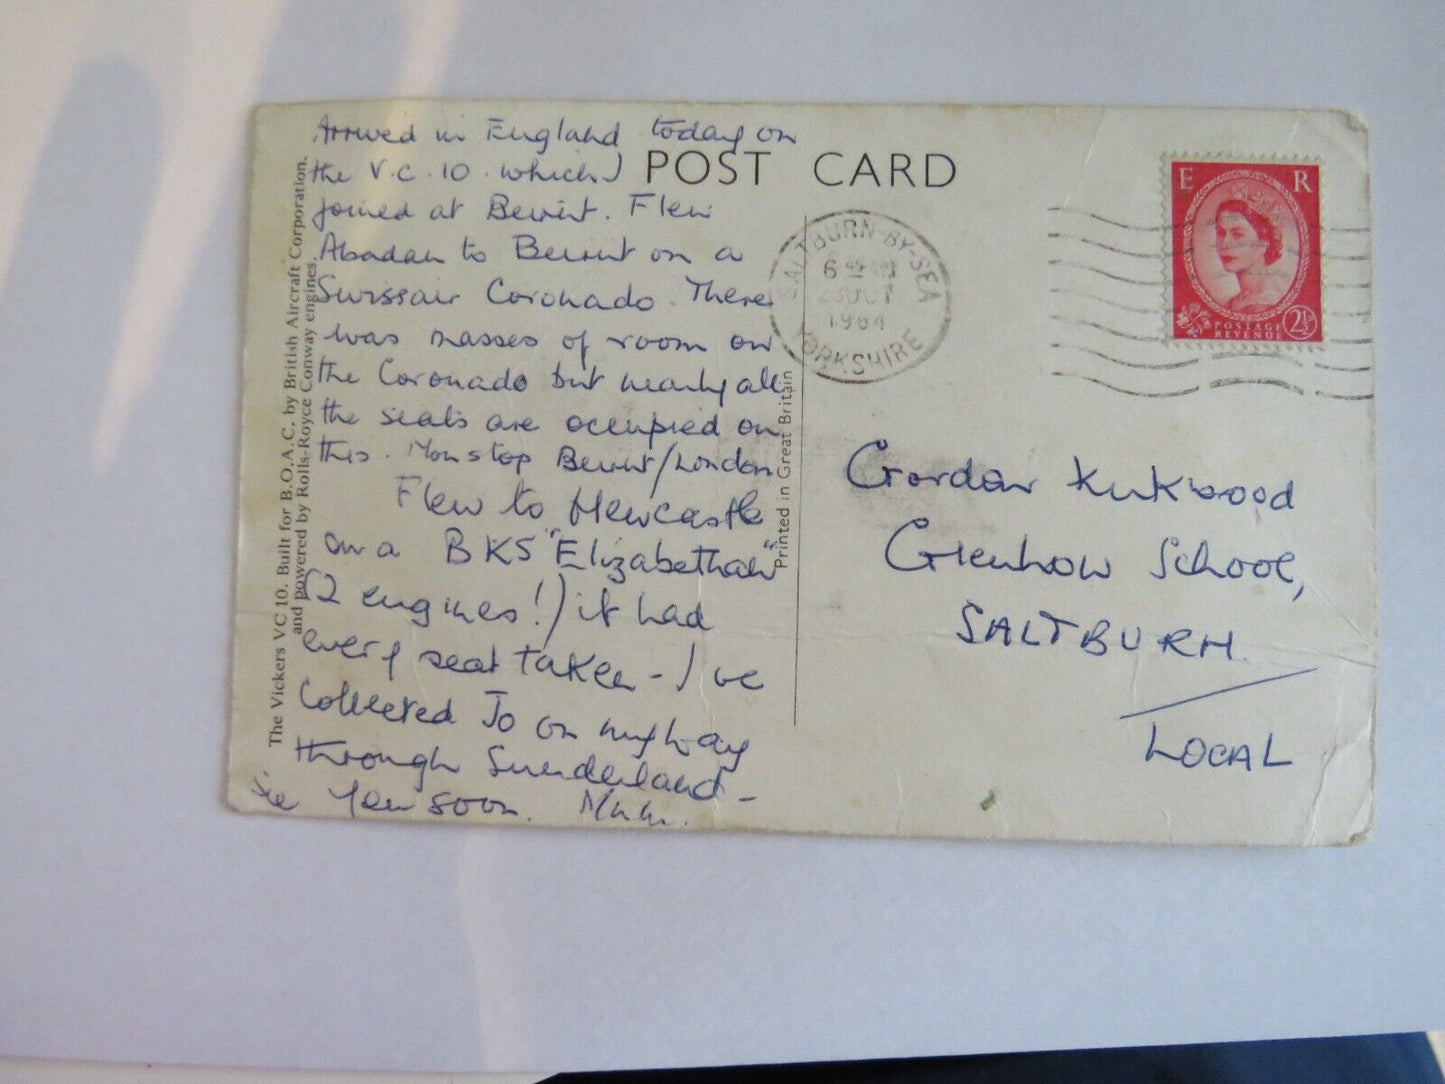 The Vickers VC 10. Built for B.O.A.C. by British Aircraft Corporation.
and powered by Rolls-Royce Conway engines.
Arrived in England today on
the V.C.10. which I
joined at Beirut. Flew
Abadan to Beirut on a
Swissair Coronado. There
was masses of room on
the Coronado but nearly all
the seats are occupied on
this. Non stop Beirut/London
Flew to Newcastle
on a BKS "Elizabethan"
(2 engines!) it had
every seat taken - I've
collected Jo on my way
through Sunderland -
See you soon. Mum.
POST CARD
Printed in Great Britain
SALTBURN-BY-SEA
6 45 AM
23 OCT
1964
YORKSHIRE
E R
POSTAGE 2½
REVENUE
Gordon Kirkwood
Glenhow School,
SALTBURN.
LOCAL